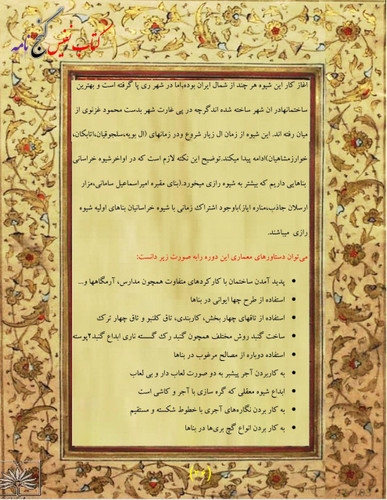 کتاب نفیس گنج نامه
آغاز کار این شیوه هر چند از شمال ایران بوده،اما در شهر ری پا گرفته است و بهترین
ساختمانهادران شهر ساخته شده اندگرچه در پی غارت شهر بدست محمود غزنوی از
میان رفته اند. این شیوه از زمان ال زیار شروع ودر زمانهای (ال بویه،سلجوقیان،اتابکان،
خوارزمشاهیان)ادامه پیدا میکند.توضیح این نکته لازم است که در اواخرشیوه خراسانی
بناهایی داریم که بیشتر به شیوه رازی میخورد.(بنای مقبره امیراسماعیل سامانی،مزار
ارسلان جاذب،مناره ایاز)باوجود اشتراک زمانی با شیوه خراسانیان بناهای اولیه شیوه
رازی میباشند.
می‌توان دستاوردهای معماری این دوره رابه صورت زیر دانست:
• پدید آمدن ساختمان با کارکردهای متفاوت همچون مدارس، آرمگاهها و...
• استفاده از طرح چها ایوانی در بناها
• استفاده از تاقهای چهار بخش، کاربندی، تاق کلنبو و تاق چهار ترک
• ساخت گنبد روش مختلف همچون گنبد رک گسسته ناری ابداع گنبد۲پوسته
• استفاده دوباره از مصالح مرغوب در بناها
• به کاربردن آجر پیشبر به دو صورت لعاب دار و بی لعاب
• ابداع شیوه معقلی که گره سازی با آجر و کاشی است
• به کار بردن نگاره‌های آجری با خطوط شکسته و مستقیم
• به کار بردن انواع گچ بری‌ها در بناها